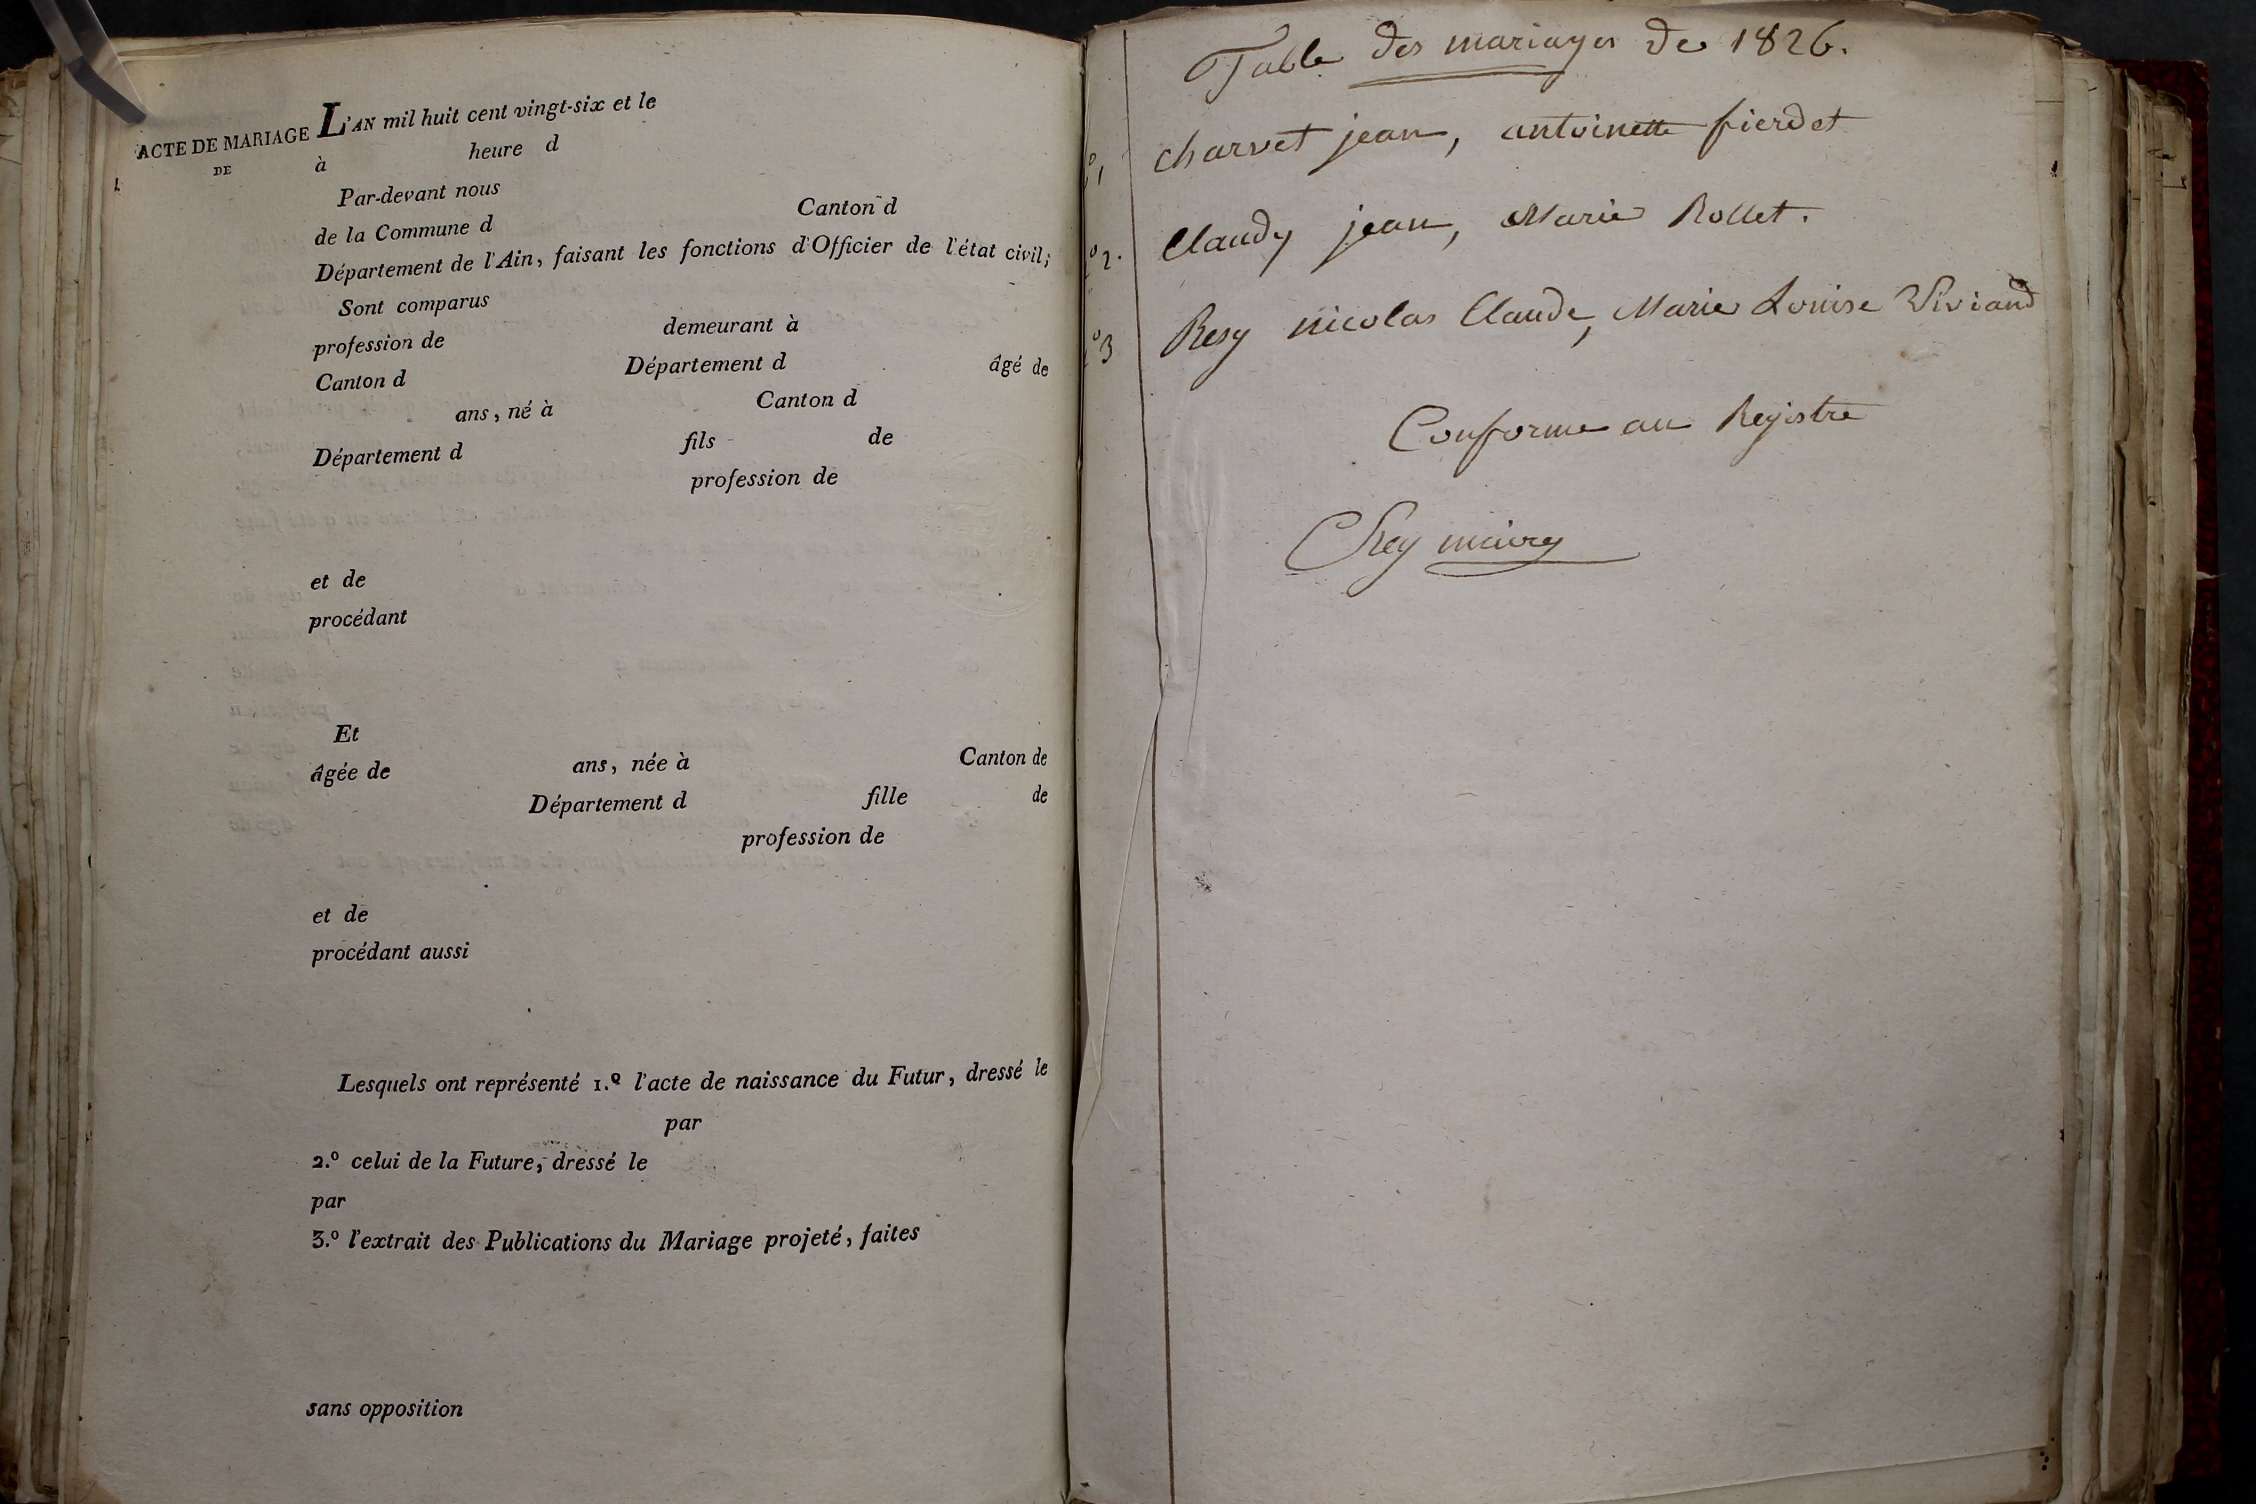 ACTE DE MARIAGE
DE
L'AN mil huit cent vingt-six et le
à heure d
Par-devant nous
de la Commune d Canton d
Département de l'Ain, faisant les fonctions d'Officier de l'état civil;
Sont comparus
profession de demeurant à
Canton d Département d âgé de
ans, né à Canton d
Département d fils de
profession de
et de
procédant
Et
âgée de ans, née à Canton de
Département d fille de
profession de
et de
procédant aussi
Lesquels ont représenté 1.º l'acte de naissance du Futur, dressé le
par
2.º celui de la Future, dressé le
par
3.º l'extrait des Publications du Mariage projeté, faites
sans opposition
Table des mariages de 1826.
º1 charvet jean, antoinette fierdet
º2. Claudy jean, Marie Rollet.
º3 Rey nicolas Claude, Marie Louise Viviand
Conforme au Registre
Rey maire